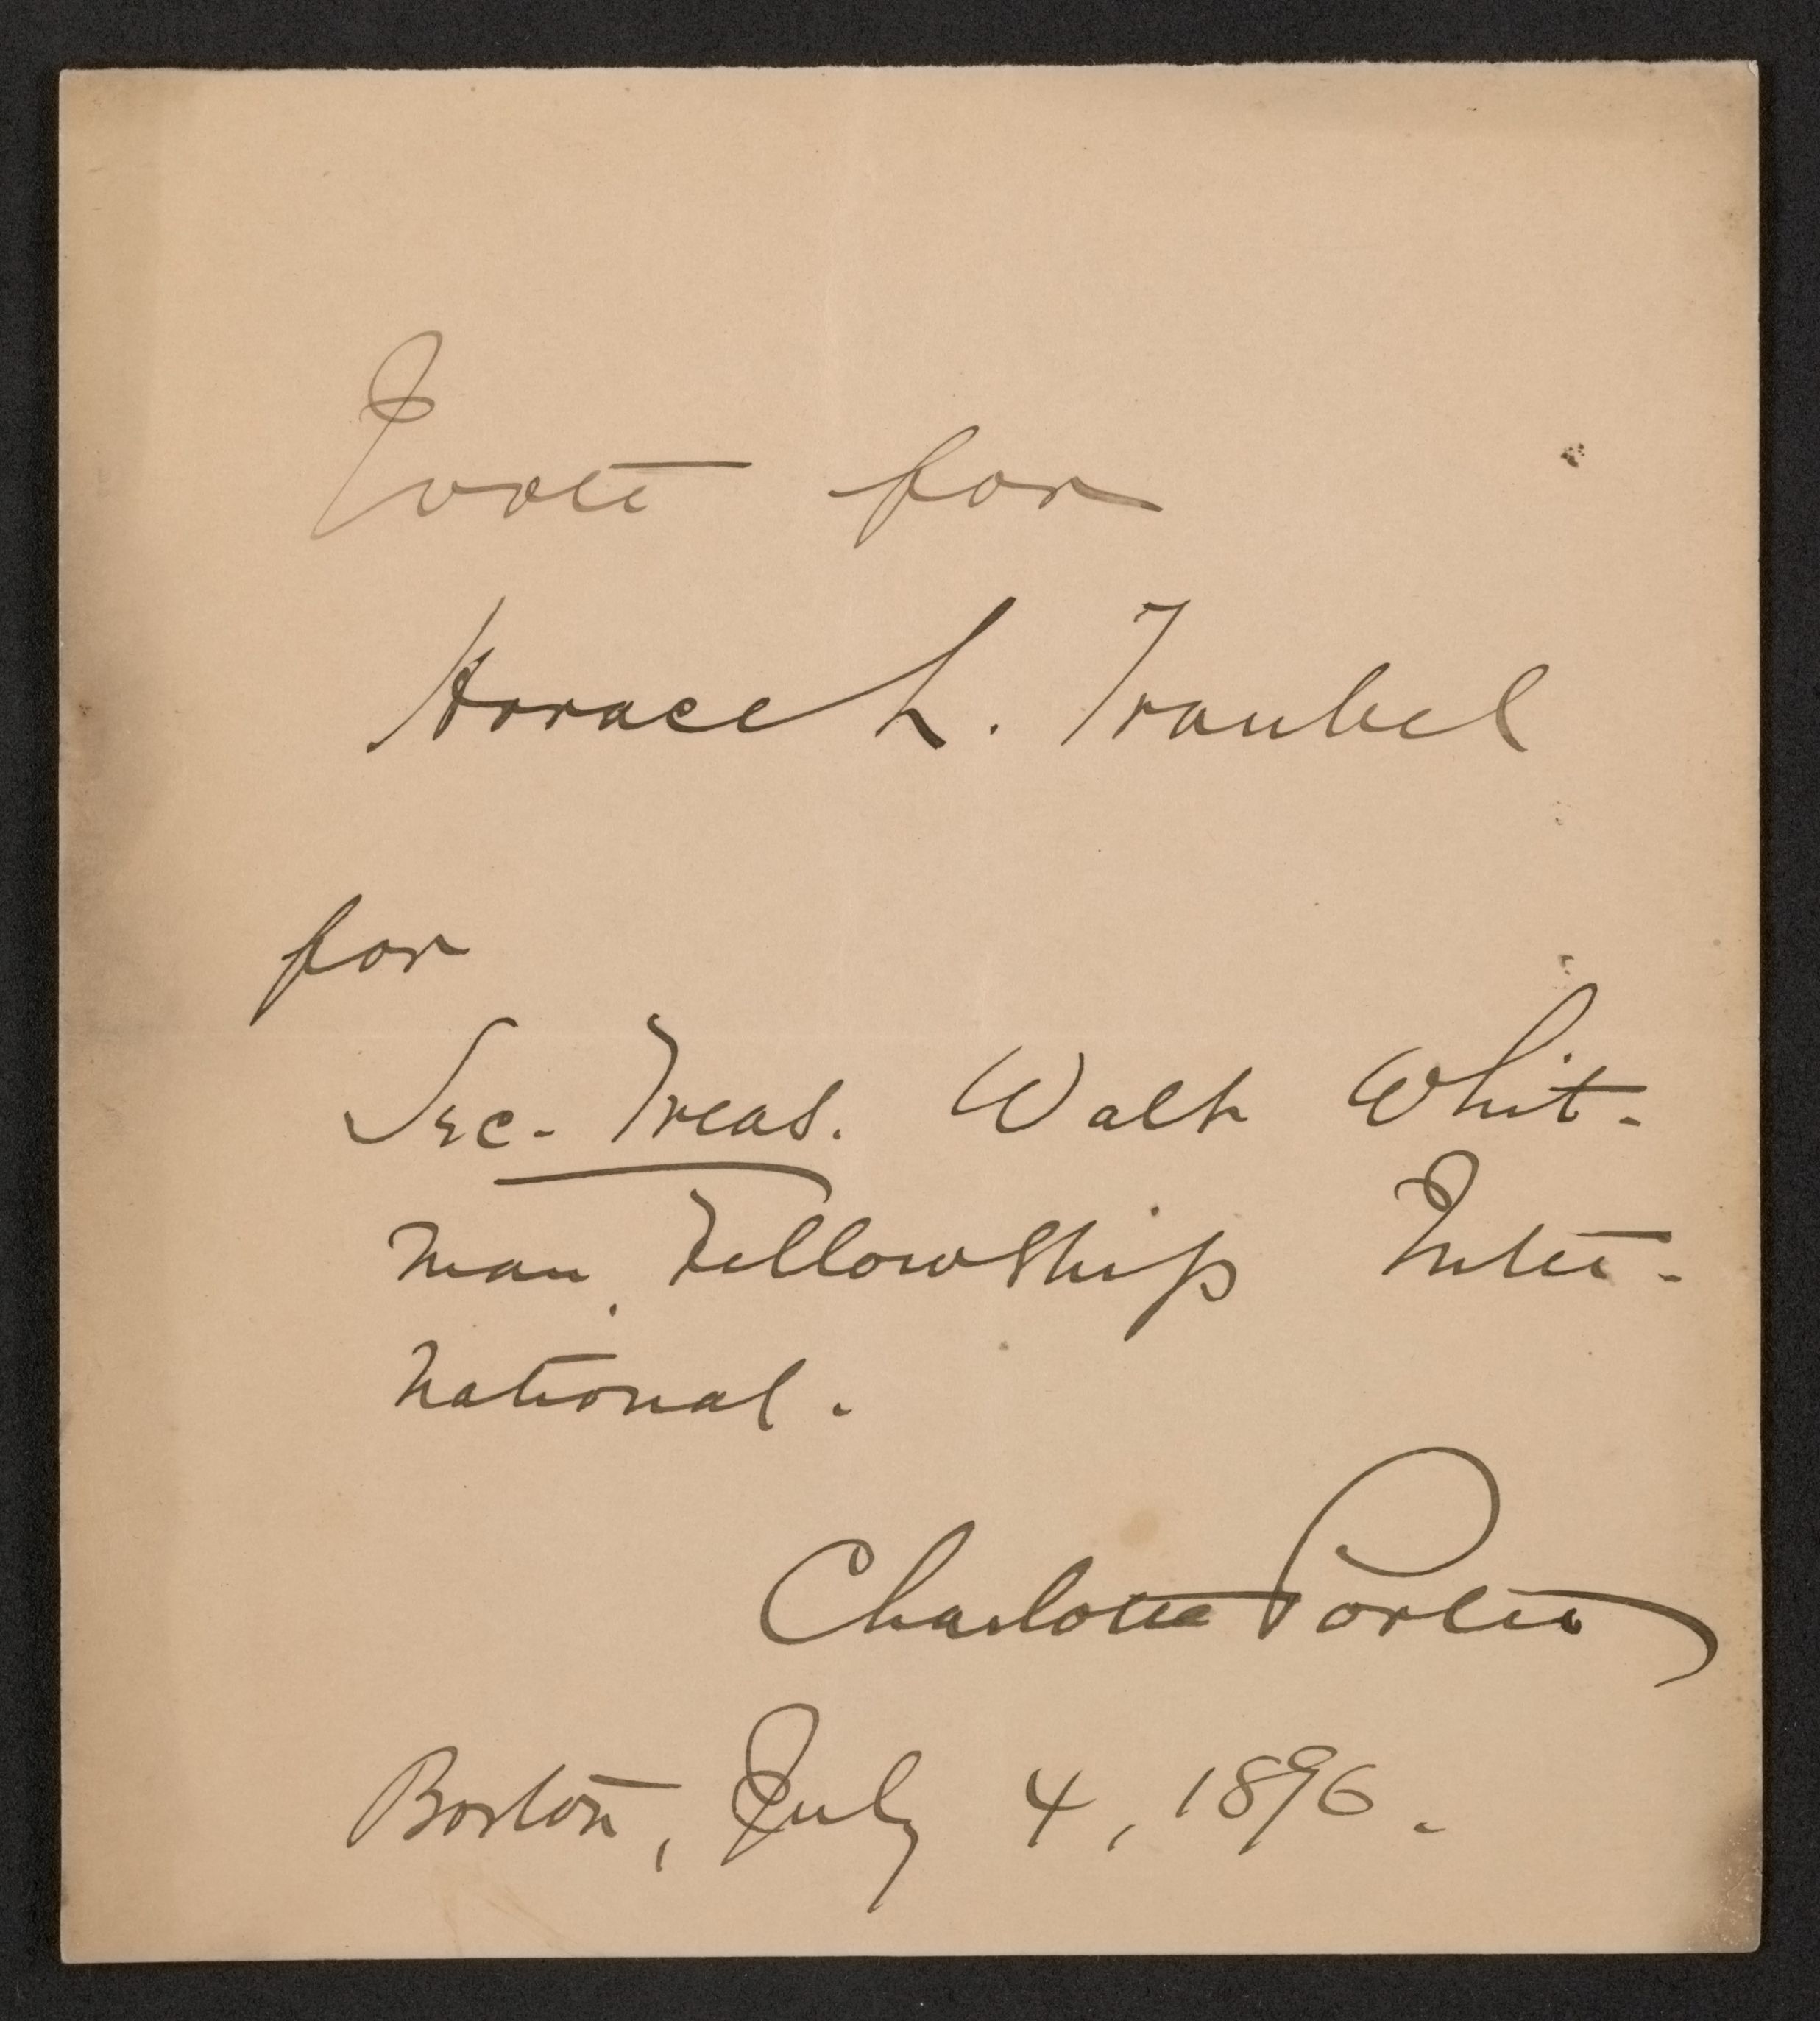 I vote for
Horace L. Traubel
for
Sec.-Treas. Walt Whit-
man Fellowship Inter-
national.
Charlotte Porter
Boston, July 4, 1896.